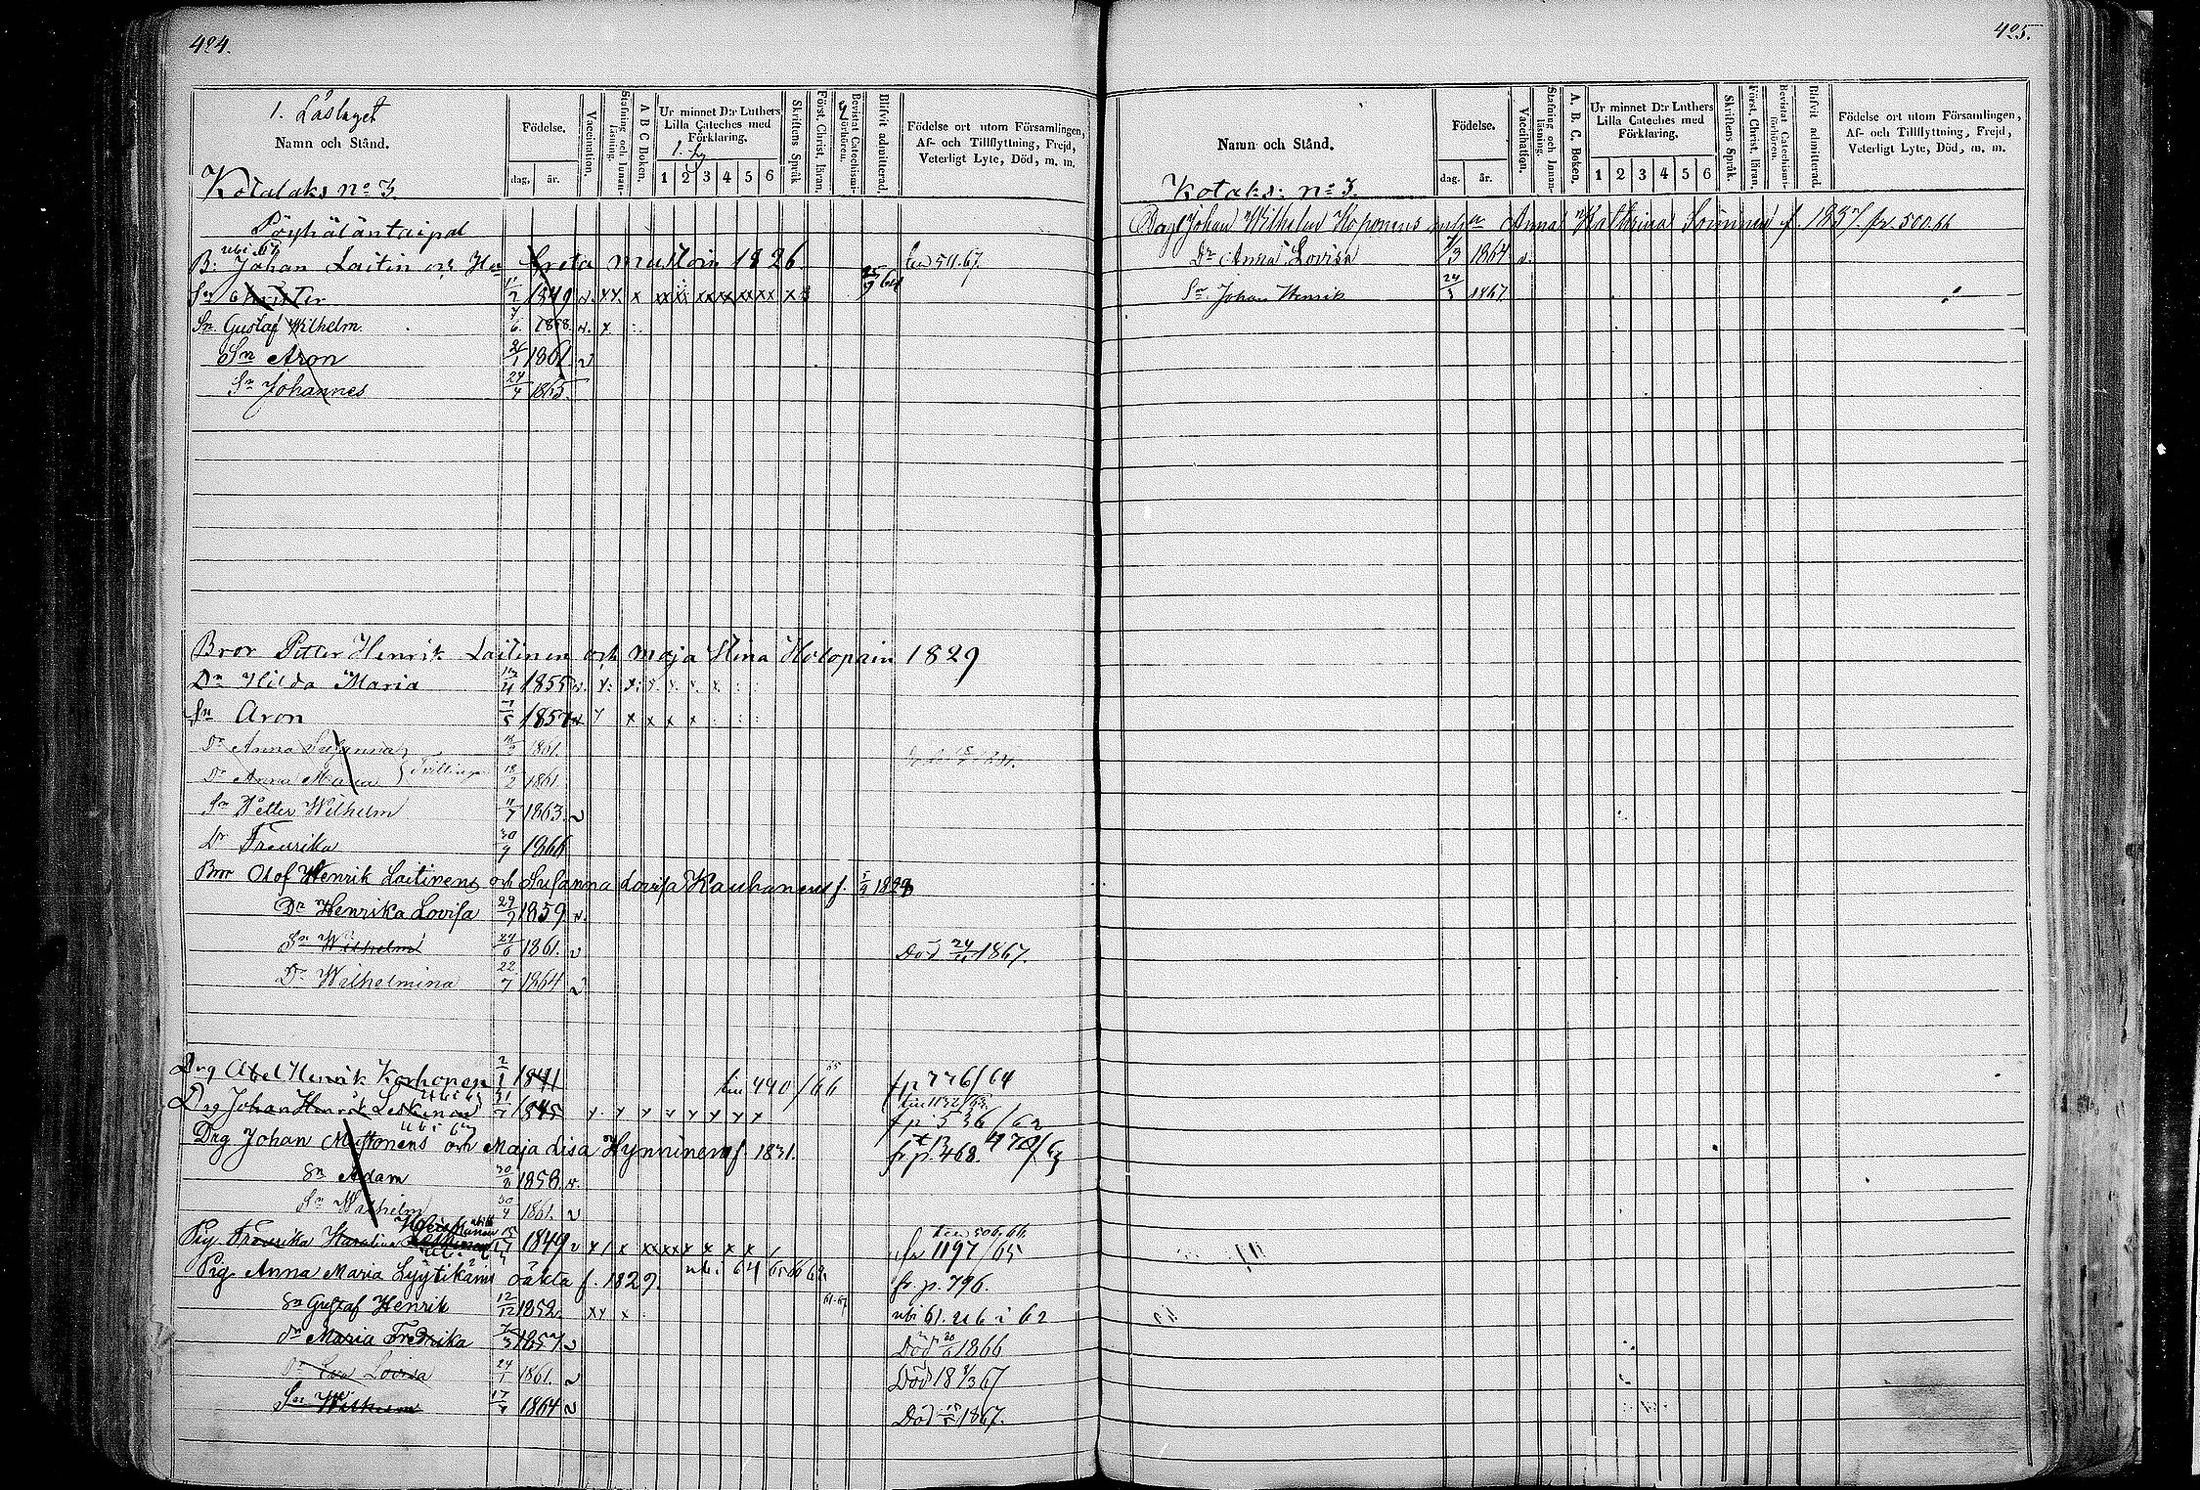 424.
1. Läslaget
Namn och Stånd.
Födelse.
dag. år.
Vaccination.
Stafning och Innanläsning.
A B C Boken.
Ur minnet D:r Luthers Lilla Cateches med Förklaring.
1 2 3 4 5 6
Skriftens Språk
Förståt. Christ. läran.
Bevistat Catechismi-förhören.
Blifvit admitterad.
Födelse ort utom Församlingen,
Af- och Tillflyttning, Frejd,
Veterligt Lyte, Död, m. m.
Kotalaks No 3.
Pöyhäläntaipal
B: Johan Laitin och Hu Greta Mustoin 1826. 511.67.
Sn Christer 1849 v. x x. x xx xx xx xx xx xx x
Sn Gustaf Wilhelm. 7/6. 1858. v. x
Sn Aron 26/1 1861 v
Sn Johannes 24/4 1865.
Bror Petter Henrik Laitinen och Maja Stina Holopain 1829
Dr Hilda Maria 1855 v. x. x. x. x. x. x.
Sn Aron 7/5 1857 v x x x x
Dr Anna Susanna 1861.
Dr Anna Maria Tvillingar 18/2 1861.
Sn Petter Wilhelm 1863. v
Dr Fredrika 30/9 1866
Bror Olof Henrik Laitinens och Susanna Lovisa Kauhanens f. 1828
Dr Henrika Lovisa 29/9 1859 v.
Sn Wilhelm 24/6 1861. v Död 1867.
Dr Wilhelmina 22/7 1864 v
Drg Abel Henrik Korhonen 2/1 1841 490/66 fr p 776/64
Drg Johan Henrik Leskinen 1845 x. x x x x x x x fr p 536/62
Drg Johan Mustonens och Maja Lisa Hynninens f. 1831. fr p. 468.
Sn Adam 30/8 1858. v.
Sn Wilhelm 30/4 1861. v
Pig. Fredrika Karolina 1849 v x x xx xx x x x x 506.66. fr 1197/65
Pig. Anna Maria Lyytikäins oäkta f. 1829. ubi 64 65 66 fr. p. 796.
Sn Gustaf Henrik 12/12 1852. xx x ubi 61. ub i 62
Dr Maria Fredrika 1857 v Död 1866
Dr Eva Lovisa 24/1 1861. v Död 18 67
Sn Wilhelm 1864 v Död 1867.
425.
Namn och Stånd.
Födelse.
dag. år.
Vaccination.
Stafning och Innanläsning.
A. B. C. Boken.
Ur minnet D:r Luthers Lilla Cateches med Förklaring.
1 2 3 4 5 6
Skriftens Språk.
Förståt. Christ. läran.
Bevistat Catechismi-förhören.
Blifvit admitterad.
Födelse ort utom Församlingen,
Af- och Tillflyttning, Frejd,
Veterligt Lyte, Död, m. m.
Kotaks: No 3.
Johan Wilhelm Koponens Anna Kathrina f. 1837. fr. 500.66
Dr Anna Lovisa 1864 v.
Sn Johan Henrik 1867